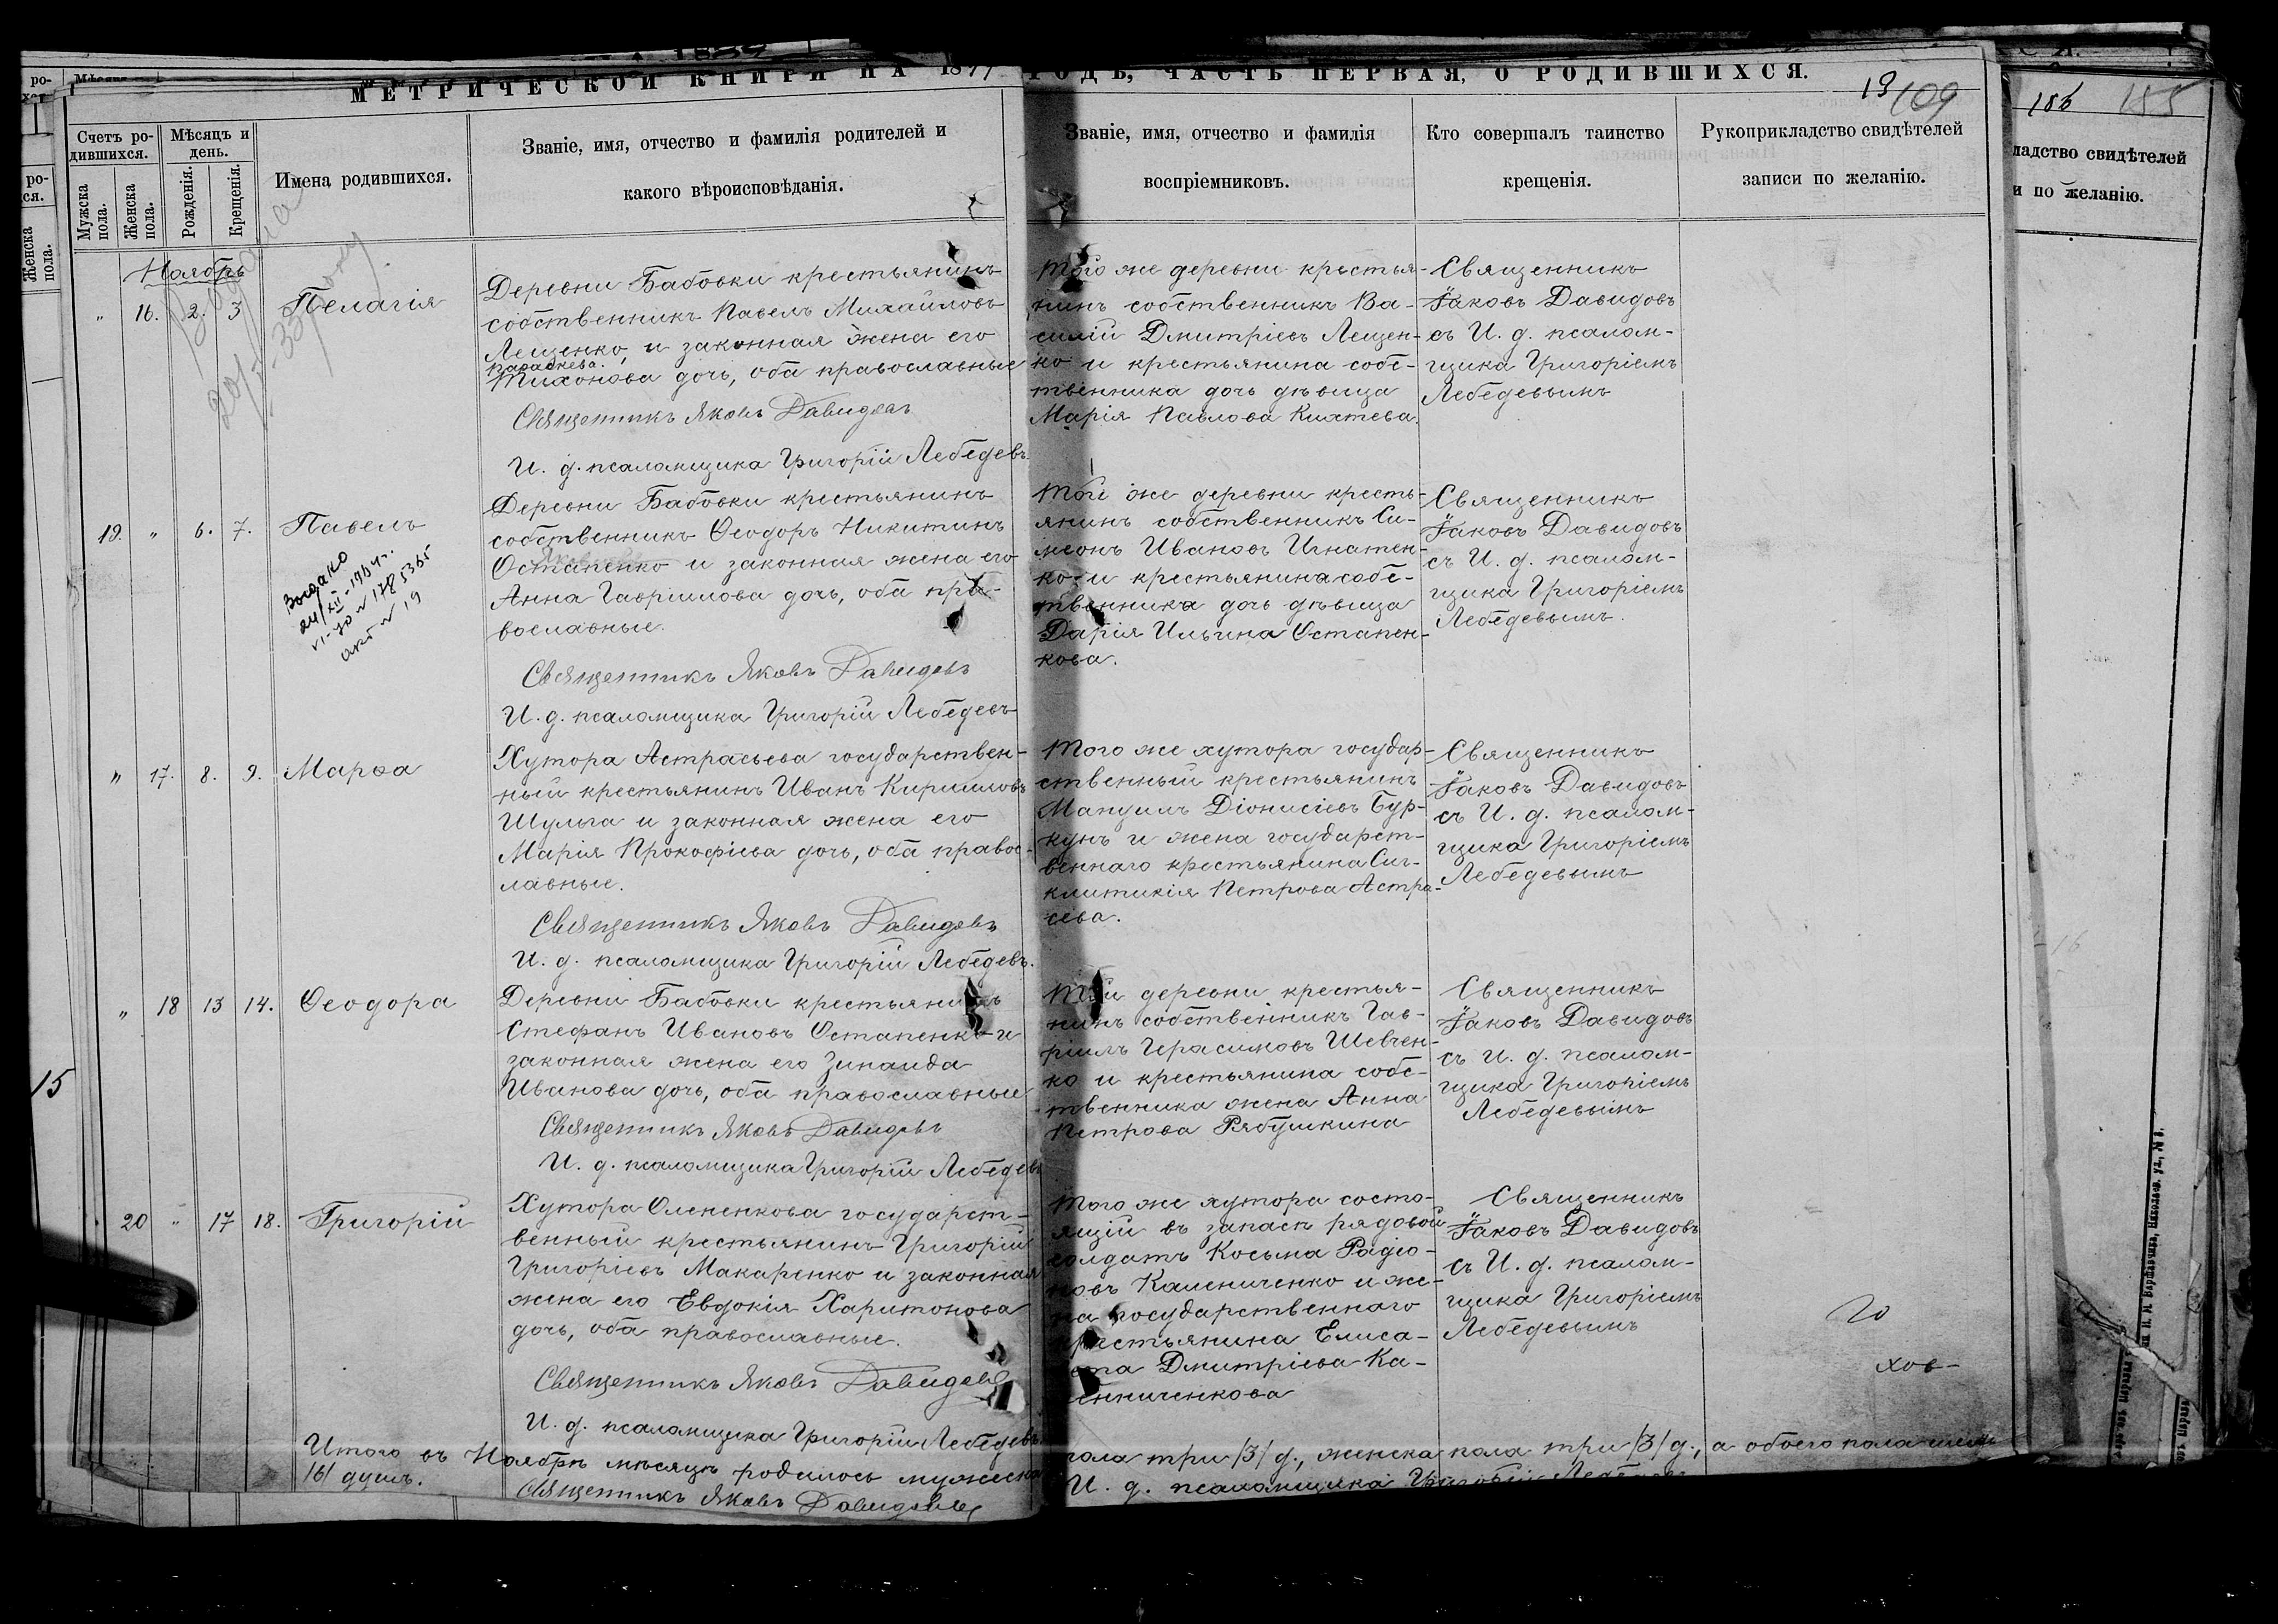 МЕТРИЧЕСКОЙ КНИГИ НА 18
ГОДЪ, ЧАСТЬ ПЕРВАЯ, О РОДИВШИХСЯ.
19
109
186
185
Счетъ ро-
дившихся.
Мужска
пола.
Женска
пола.
Мѣсяцъ и
день.
Рожденія.
Крещенія.
Имена родившихся.
Званіе, имя, отчество и фамилія родителей и
какого вѣроисповѣданія.
Званіе, имя, отчество и фамилія
воспріемниковъ.
Кто совершалъ таинство
крещенія.
Рукоприкладство свидѣтелей
записи по желанію.
ладство свидѣтелей
и по желанію.
Ноябрь
" 16. 2. 3
Пелагія
Деревни Бабовки крестьянинъ
собственникъ Павелъ Михайловъ
Лещенко, и законная жена его
Параскева
Тихонова дочь, оба православные
Священникъ Яковъ Давидовъ
И. д. псаломщика Григорій Лебедевъ.
Того же деревни крестья-
нинъ собственникъ Ва-
силій Дмитріевъ Лещен-
ко и крестьянина собс-
твенника дочь дѣвица
Марія Павлова Кихтева.
Священникъ
Іаковъ Давидовъ
съ И. д. псалом-
щика Григоріемъ
Лебедевымъ
19. " 6. 7.
Павелъ
Деревни Бабовки крестьянинъ
собственникъ Ѳеодоръ Никитинъ
Остапенко и законная жена его
Анна Гавриилова дочь, оба пра-
вославные.
Священникъ Яковъ Давидовъ
И. д. псаломщика Григорій Лебедевъ
Той же деревни кресть-
янинъ собственникъ Си-
меонъ Ивановъ Игнатен-
ко и крестьянина собс-
твенника дочь дѣвица
Дарія Ильина Остапен-
кова.
Священникъ
Іаковъ Давидовъ
съ И. д. псалом-
щика Григоріемъ
Лебедевымъ.
" 17. 8. 9.
Марѳа
Хутора Астрасьева государствен-
ный крестьянинъ Иванъ Кирилловъ
Шульга и законная жена его
Марія Прокофіева дочь, оба правос-
лавные.
Священникъ Яковъ Давидовъ
И. д. псаломщика Григорій Лебедевъ.
Того же хутора государ-
ственный крестьянинъ
Мануилъ Діонисіевъ Бур-
кунъ и жена государст-
веннаго крестьянина Сиг-
клитикія Петрова Астра-
сева.
Священникъ
Іаковъ Давидовъ
съ И. д. псалом-
щика Григоріемъ
Лебедевымъ
" 18 13 14.
Ѳеодора
Деревни Бабовки крестьянинъ
Стефанъ Ивановъ Остапенко и
законная жена его Зинаида
Иванова дочь, оба православные
Священникъ Яковъ Давидовъ
И. д. псаломщика Григорій Лебедевъ
Той деревни крестья-
нинъ собственникъ Гав-
ріилъ Герасимовъ Шевчен-
ко и крестьянина собс-
твенника жена Анна
Петрова Рябушкина
Священникъ
Іаковъ Давидовъ
съ И. д. псалом-
щика Григоріемъ
Лебедевымъ
15
20 " 17 18.
Григорій
Хутора Олененкова государст-
венный крестьянинъ Григорій
Григоріевъ Макаренко и законная
жена его Евдокія Харитонова
дочь, оба православные.
Священникъ Яковъ Давидовъ
И. д. псаломщика Григорій Лебедевъ
Того же хутора состо-
ящій въ запасѣ рядовой
солдатъ Косьма Радіо-
новъ Калениченко и же-
на государственнаго
крестьянина Елиса-
вета Дмитріева Ка-
лениченкова
Священникъ
Іаковъ Давидовъ
съ И. д. псалом-
щика Григоріемъ
Лебедевымъ
Итого въ Ноябрѣ мѣсяцѣ родилось мужеска пола три /3/ д., женска пола три /3/ д., а обоего пола шесть
/6/ душъ.
Священникъ Яковъ Давидовъ
И. д. псаломщика Григорій Лебедевъ